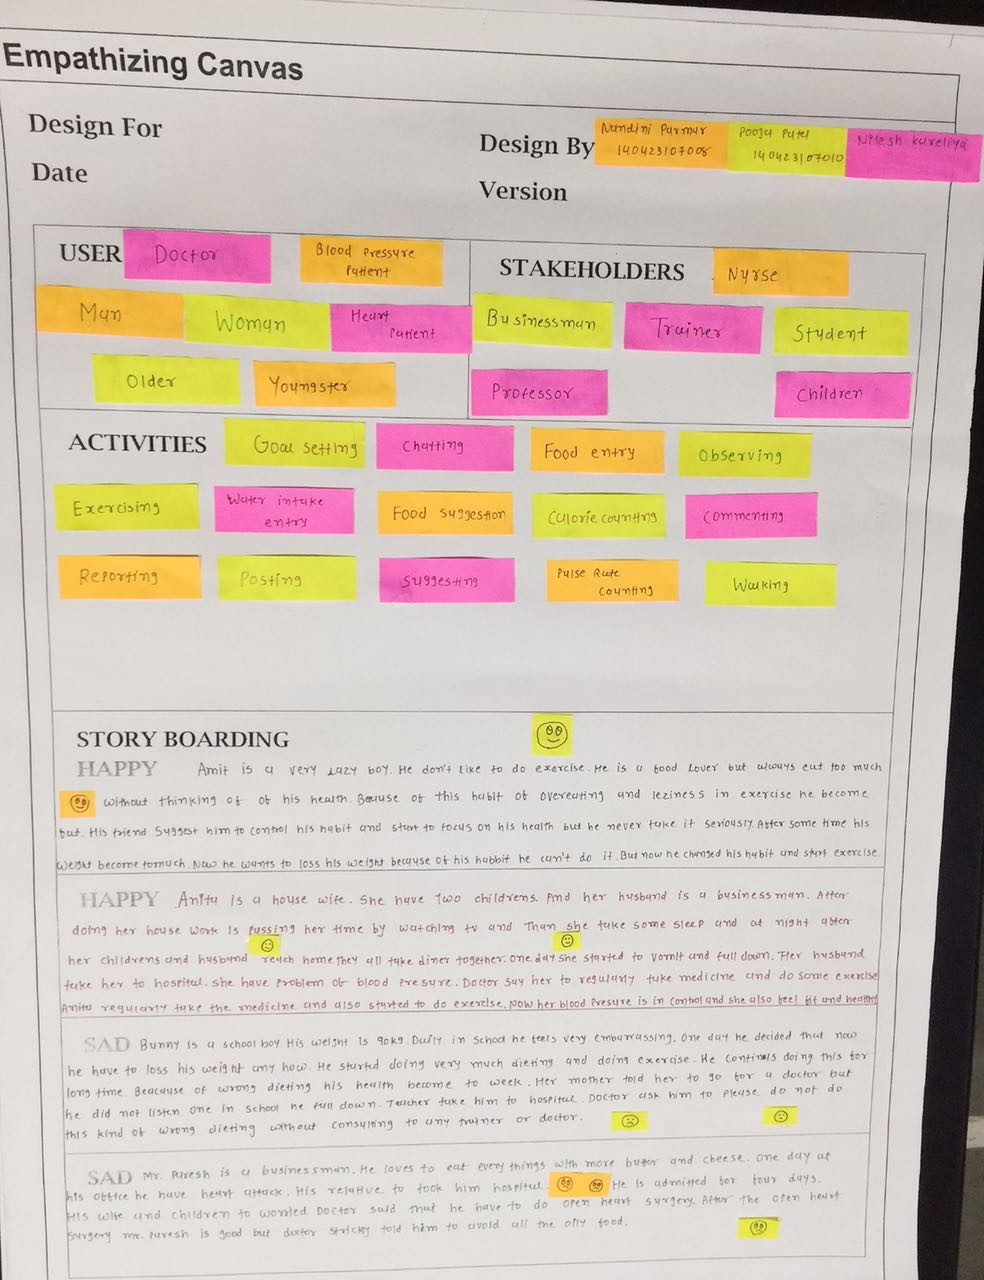 Empathizing Canvas
Design For
Design By
Nandini Parmar
140423107008
Pooja Patel
140423107010
Nilesh Kareliya
Date
Version
USER
Doctor
Blood Pressure
Patient
Man
Woman
Heart
Patient
Older
Youngster
STAKEHOLDERS
Nurse
Businessman
Trainer
Student
Professor
Children
ACTIVITIES
Goal setting
Chatting
Food entry
Observing
Exercising
Water intake
entry
Food suggestion
Calorie counting
Commenting
Reporting
Posting
Suggesting
Pulse Rate
Counting
Walking
STORY BOARDING
HAPPY Amit is a very lazy boy. He don't like to do exercise. He is a food lover but always eat too much
without thinking of of his health. Beause of this habit of overeating and leziness in exercise he become
fat. His friend suggest him to control his habit and start to focus on his health but he never take it seriously. After some time his
weight become tomuch. Now he wants to loss his weight because of his habbit he can't do it. But now he changed his habit and start exercise.
HAPPY Anita is a house wife. She have two childrens. And her husband is a business man. After
doing her house work is passing her time by watching tv and Than she take some sleep and at night after
her childrens and husband reach home they all take diner together. one day she started to vomit and fall down. Her husband
take her to hospital. she have problem of blood presure. Doctor say her to regularly take medicine and do some exercise
Anita regularly take the medicine and also started to do exercise. Now her blood presure is in control and she also feel fit and healthy
SAD Bunny is a school boy His weight is 90kg. Daily in school he feels very embarrassing. One day he decided that now
he have to loss his weight any how. He started doing very much dieting and doing exercise. He continus doing this for
long time. Beacause of wrong dieting his health become to week. Her mother told her to go for a doctor but
he did not listen. one in school he fall down. Teacher take him to hospital. Doctor ask him to please do not do
this kind of wrong dieting without consulting to any trainer or doctor.
SAD Mr. Paresh is a businessman. He loves to eat every things with more butter and cheese. one day at
his office he have heart attack. His relative to took him hospital. He is admitted for four days.
His wife and children to worried. Doctor said that he have to do open heart surgery. After the open heart
surgery mr. Paresh is good but doctor stricky told him to avoid all the oily food.